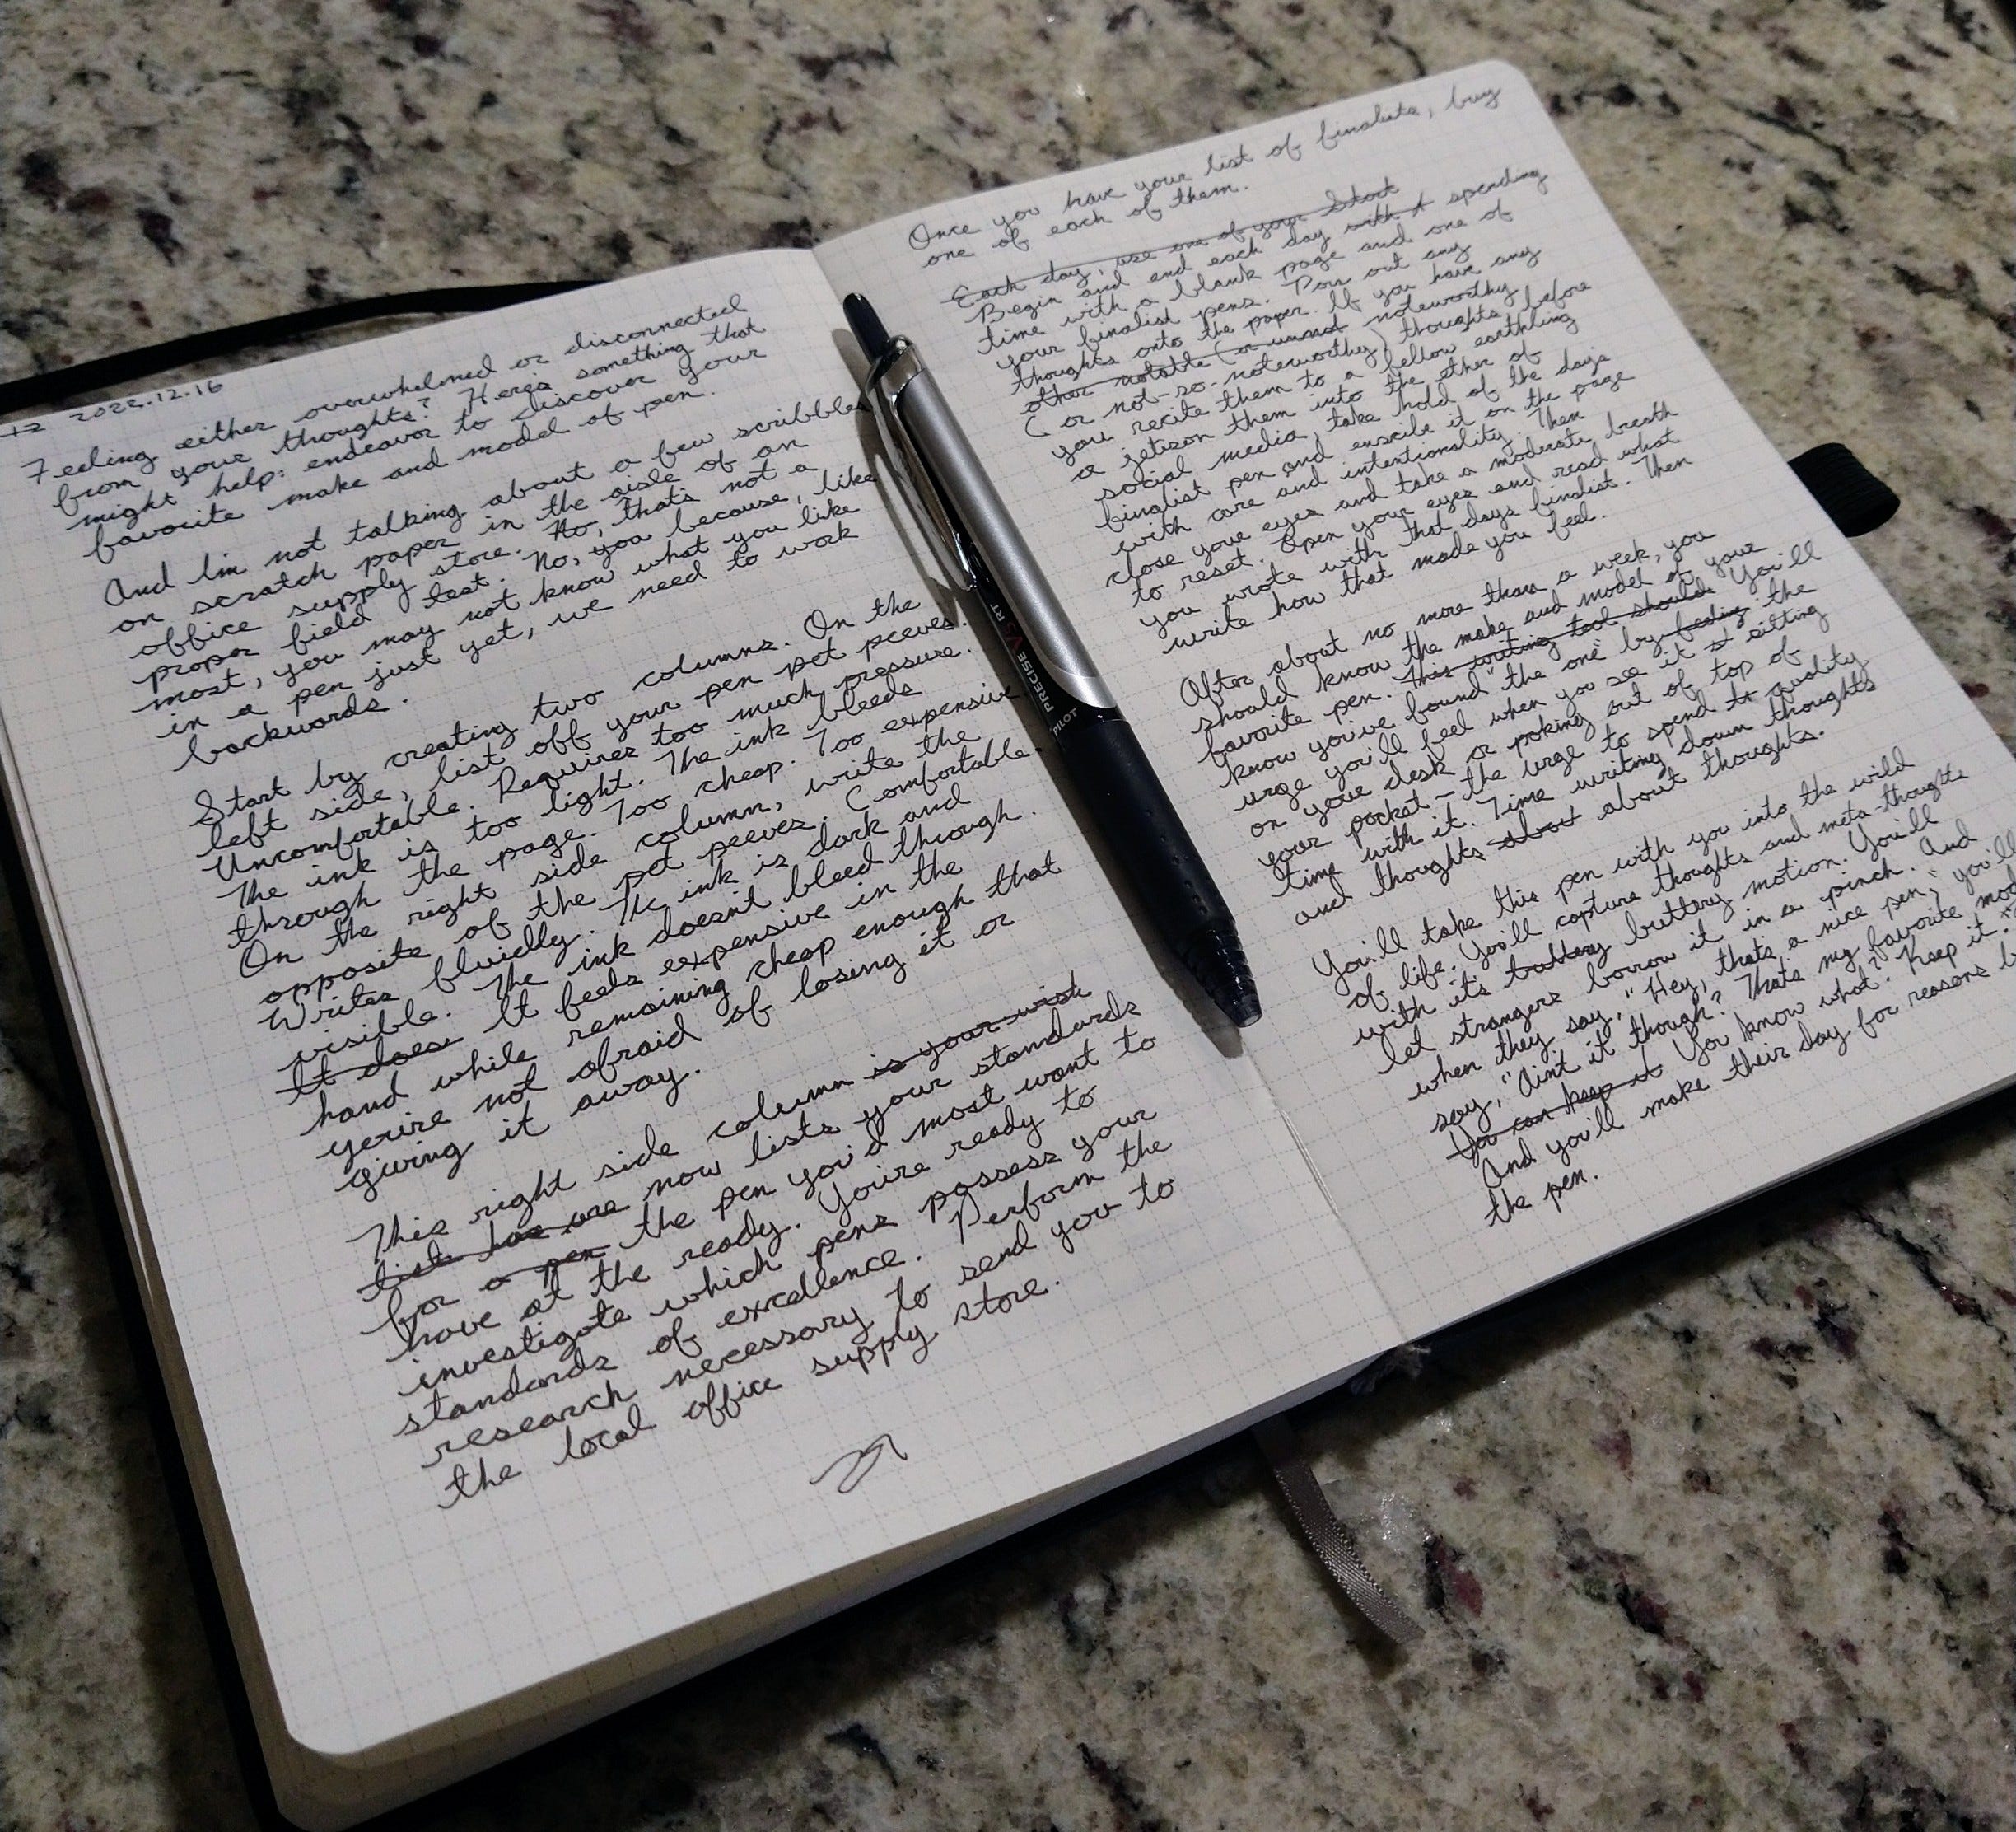 2022.12.16
Feeling either overwhelmed or disconnected
from your thoughts? Here's something that
might help: endeavor to discover your
favorite make and model of pen.
And I'm not talking about a few scribbles
on scratch paper in the aisle of an
office supply store. No, that's not a
proper field test. No, you because, like
most, you may not know what you like
in a pen just yet, we need to work
backwards.
Start by creating two columns. On the
left side, list off your pen pet peeves.
Uncomfortable. Requires too much pressure.
The ink is too light. The ink bleeds
through the page. Too cheap. Too expensive.
On the right side column, write the
opposite of the pet peeves. Comfortable.
Writes fluidly. The ink is dark and
visible. The ink doesn't bleed through.
It does It feels expensive in the
hand while remaining cheap enough that
you're not afraid of losing it or
giving it away.
This right side column is your wish
list has are now lists your standards
for a pen the pen you'd most want to
have at the ready. You're ready to
investigate which pens possess your
standards of excellence. Perform the
research necessary to send you to
the local office supply store.
Once you have your list of finalists, buy
one of each of them.
Each day, use one of your
Begin and end each day with A spending
time with a blank page and one of
your finalist pens. Pour out any
thoughts onto the paper. If you have any
other notable (or unnot noteworthy
(or not-so-noteworthy) thoughts before
you recite them to a fellow earthling
or jetison them into the ether of
social media, take hold of the day's
finalist pen and enscribe it on the page
with care and intentionality. Then
close your eyes and take a moderate breath
to reset. Open your eyes and read what
you wrote with that days finalist. Then
write how that made you feel.
After about no more than a week, you
should know the make and model of your
favorite pen. This writing tool should You'll
know you've found "the one" by feeling the
urge you'll feel when you see it sitting
on your desk or poking out of top of
your pocket – the urge to spend quality
time with it. Time writing down thoughts
and thoughts about thoughts.
You'll take this pen with you into the wild
of life. You'll capture thoughts and meta-thoughts
with its buttery motion. You'll
let strangers borrow it in a pinch. And
when they say, "Hey, thats a nice pen," you'll
say, "Ain't it though? Thats my favorite
You can keep it You know what? Keep it."
And you'll make their day for reasons
the pen.
PILOT
PRECISE V5 RT